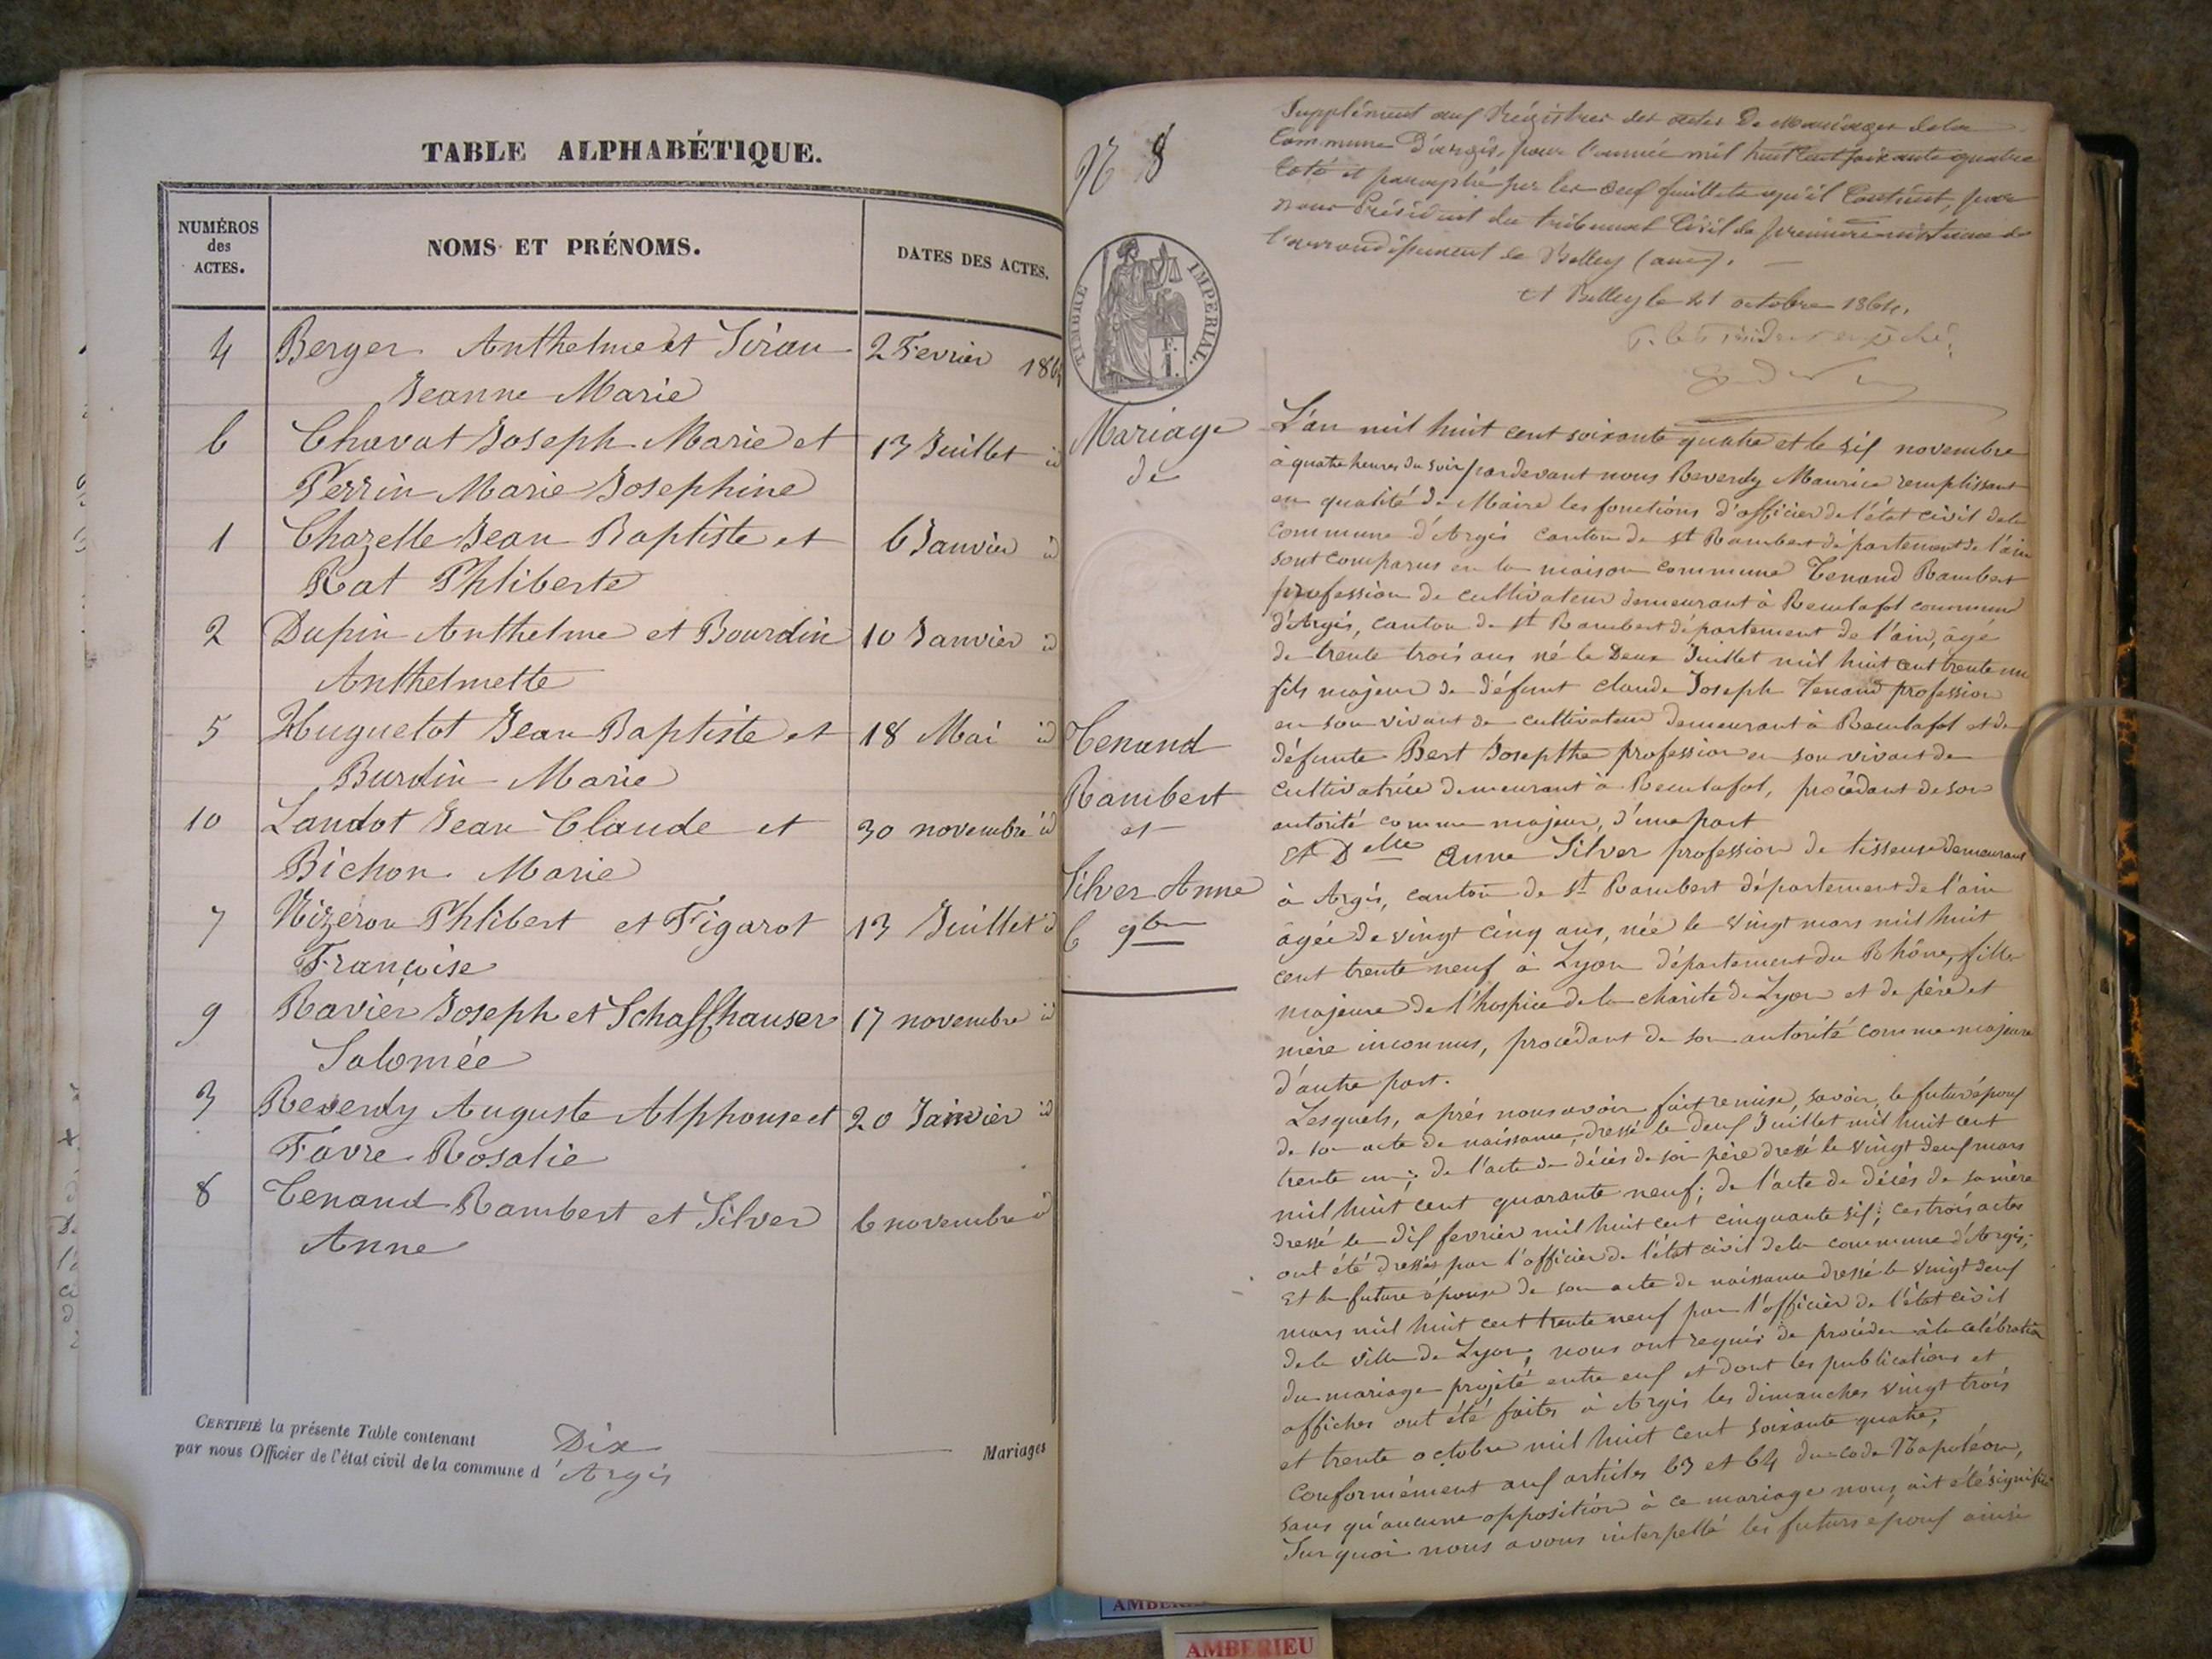 TABLE ALPHABÉTIQUE.
NUMÉROS
des
ACTES.
NOMS ET PRÉNOMS.
DATES DES ACTES.
4 Berger Anthelme et Siran 2 Fevrier 1864
Jeanne Marie
6 Chavat Joseph Marie et 13 Juillet id
Perrin Marie Josephine
1 Chazelle Jean Baptiste et 6 Janvier id
Rat Phliberte
2 Dupin Anthelme et Bourdin 10 Janvier id
Anthelmette
5 Huguetot Jean Baptiste et 18 Mai id
Burdin Marie
10 Landot Jean Claude et 30 novembre id
Bichon Marie
7 Nizeron Phlibert et Figarot 13 Juillet id
Françoise
9 Ravier Joseph et Schaffhauser 17 novembre id
Salomée
3 Reverdy Auguste Alphonse et 20 Janvier id
Favre Rosalie
8 Tenand Rambert et Silver 6 novembre id
Anne
CERTIFIÉ la présente Table contenant Dix Mariages
par nous Officier de l'état civil de la commune d'Argis
N 8
TIMBRE IMPÉRIAL.
Mariage
de
Tenand
Rambert
et
Silver Anne
6 9bre
Supplément aux Régistres des actes De Mariages de la
Commune d'argis, pour l'année mil huit cent soixante quatre
Coté et paraphé par les deux feuillets qu'il Contient, par
nous Président du tribunal Civil de première instance de
l'arrondissement de Belley (ain). —
A Belley le 21 octobre 1864.
P. le Président empêché,
L'an mil huit cent soixante quatre et le six novembre
à quatre heures du soir pardevant nous Reverdy Maurice remplissant
en qualité de Maire les fonctions d'officier de l'état civil de la
commune d'Argis canton de st Rambert département de l'ain
sont comparus en la maison commune Tenand Rambert
profession de cultivateur demeurant à Reculafol commune
d'Argis, canton de st Rambert département de l'ain, âgé
de trente trois ans né le Deux Juillet mil huit cent trente un
fils majeur de défunt claude Joseph Tenand profession
en son vivant de cultivateur demeurant à Reculafol et de
défunte Bert Josepthe profession en son vivant de
cultivatrice demeurant à Reculafol, procédant de son
autorité comme majeur, d'une part
Et Delle Anne Silver profession de tisseuse demeurant
à Argis, canton de St Rambert département de l'ain
âgée de vingt cinq ans, née le vingt mars mil huit
cent trente neuf à Lyon département du Rhône, fille
majeure de l'hospice de la charité de Lyon et de père et
mère inconnus, procédant de son autorité comme majeure
d'autre part.
Lesquels, après nous avoir fait remise, savoir, le futur époux
de son acte de naissance, dressé le deux Juillet mil huit cent
trente un; de l'acte de décès de son père dressé le vingt deux mars
mil huit cent quarante neuf; de l'acte de décès de sa mère
dressé le dix fevrier mil huit cent cinquante six; ces trois actes
ont été dressés par l'officier de l'état civil de la commune d'Argis;
Et la future épouse de son acte de naissance dressé le vingt deux
mars mil huit cent trente neuf par l'officier de l'état civil
de la ville de Lyon, nous ont requis de procéder à la célébration
du mariage projeté entre eux et dont les publications et
affiches ont été faites à Argis les dimanches vingt trois
et trente octobre mil huit cent soixante quatre,
Conformément aux articles 63 et 64 du code Napoléon,
sans qu'aucune opposition à ce mariage nous ait été signifiée
Sur quoi nous avons interpellé les futurs epoux ainsi
AMBERIEU